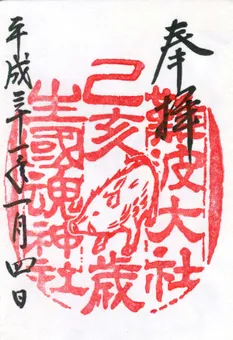 奉拝
難波大社
己亥歳
生國魂神社
平成三十一年一月四日